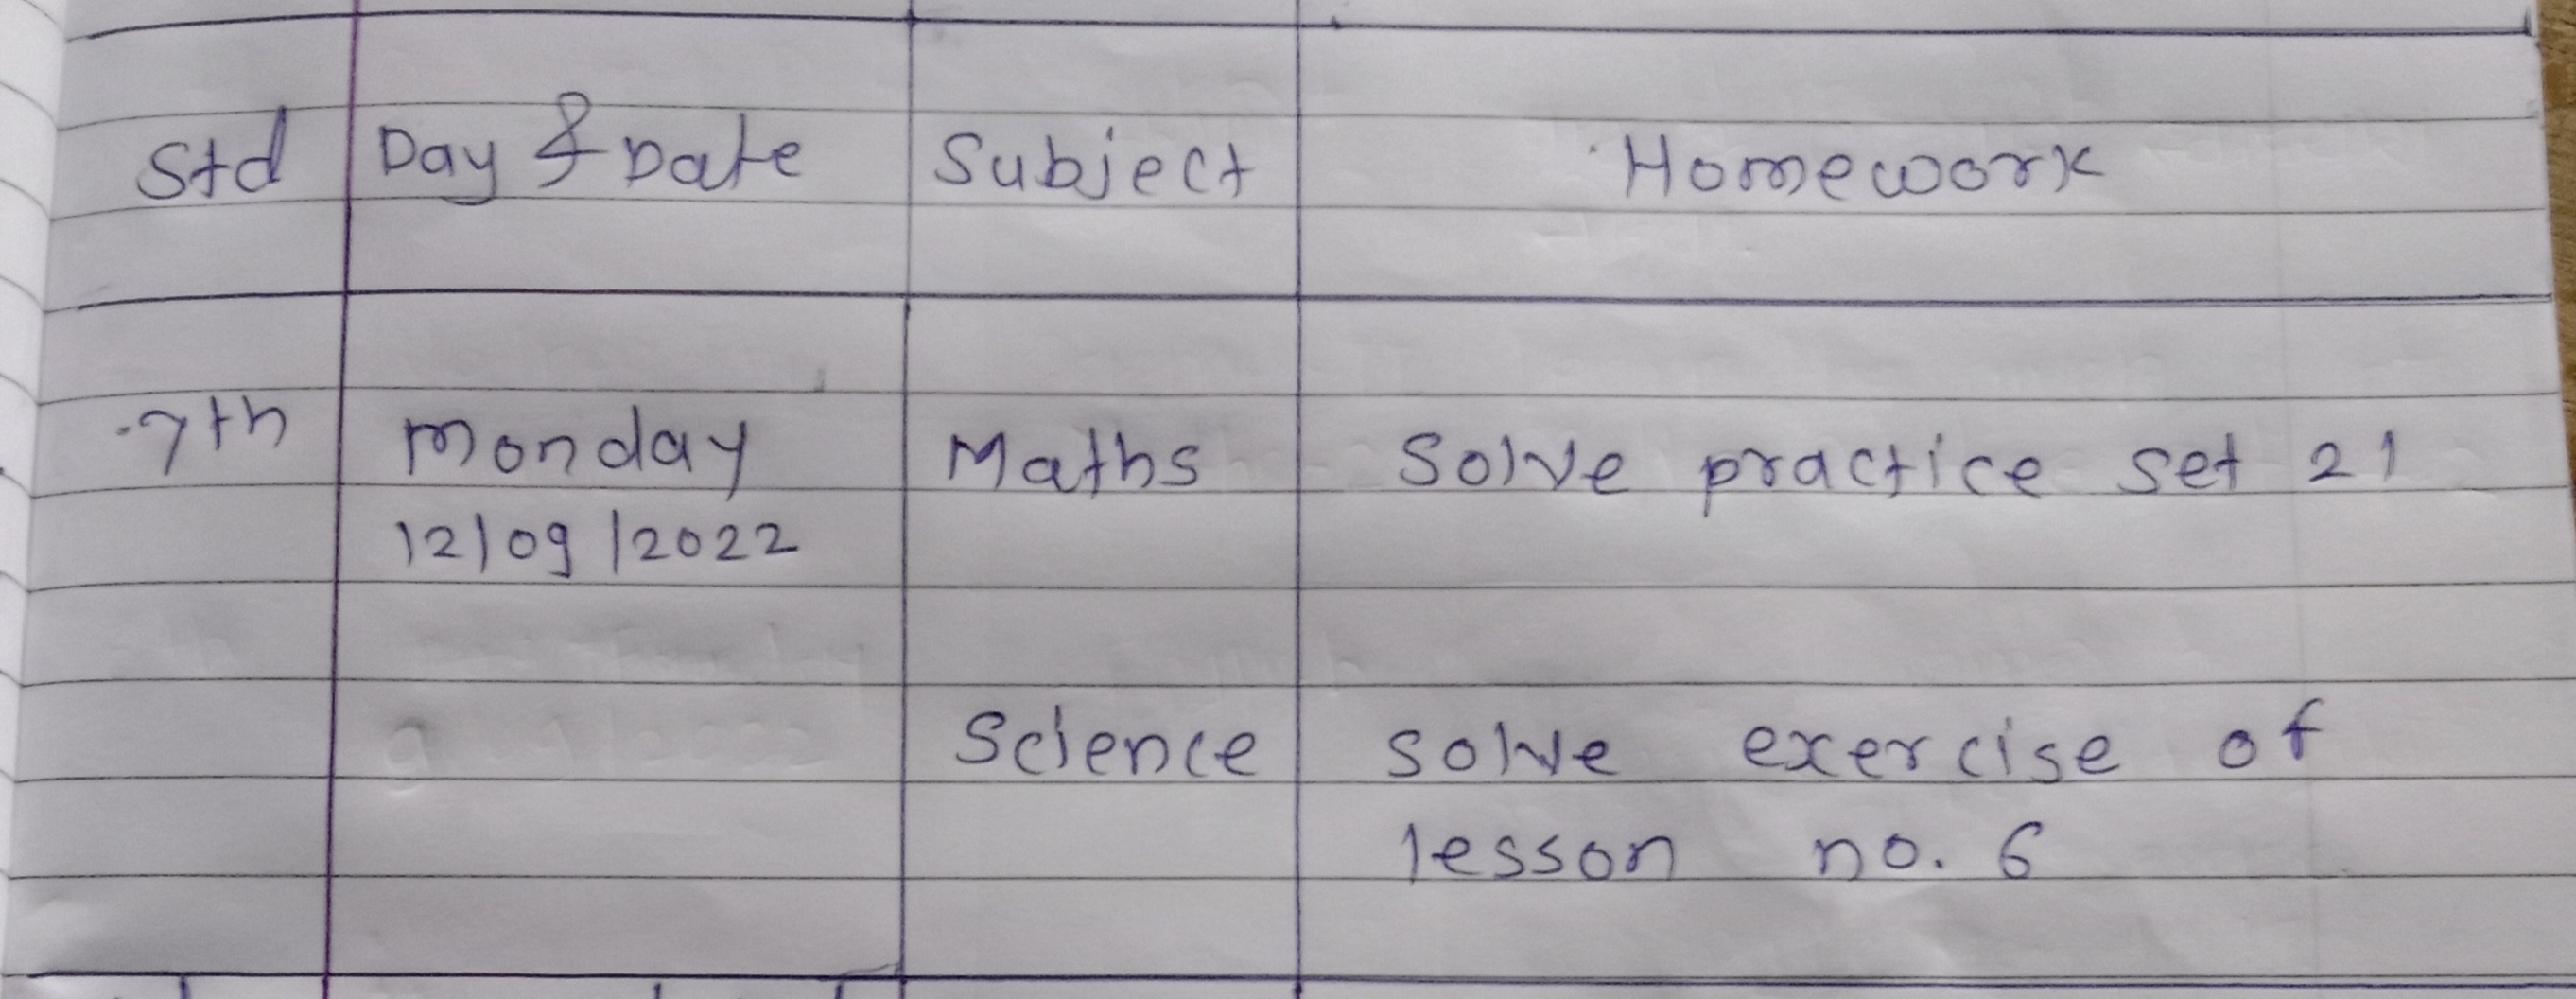 Std Day & Date Subject Homework
7th Monday Maths Solve practice set 21
12/09/2022
Science solve exercise of
lesson no. 6